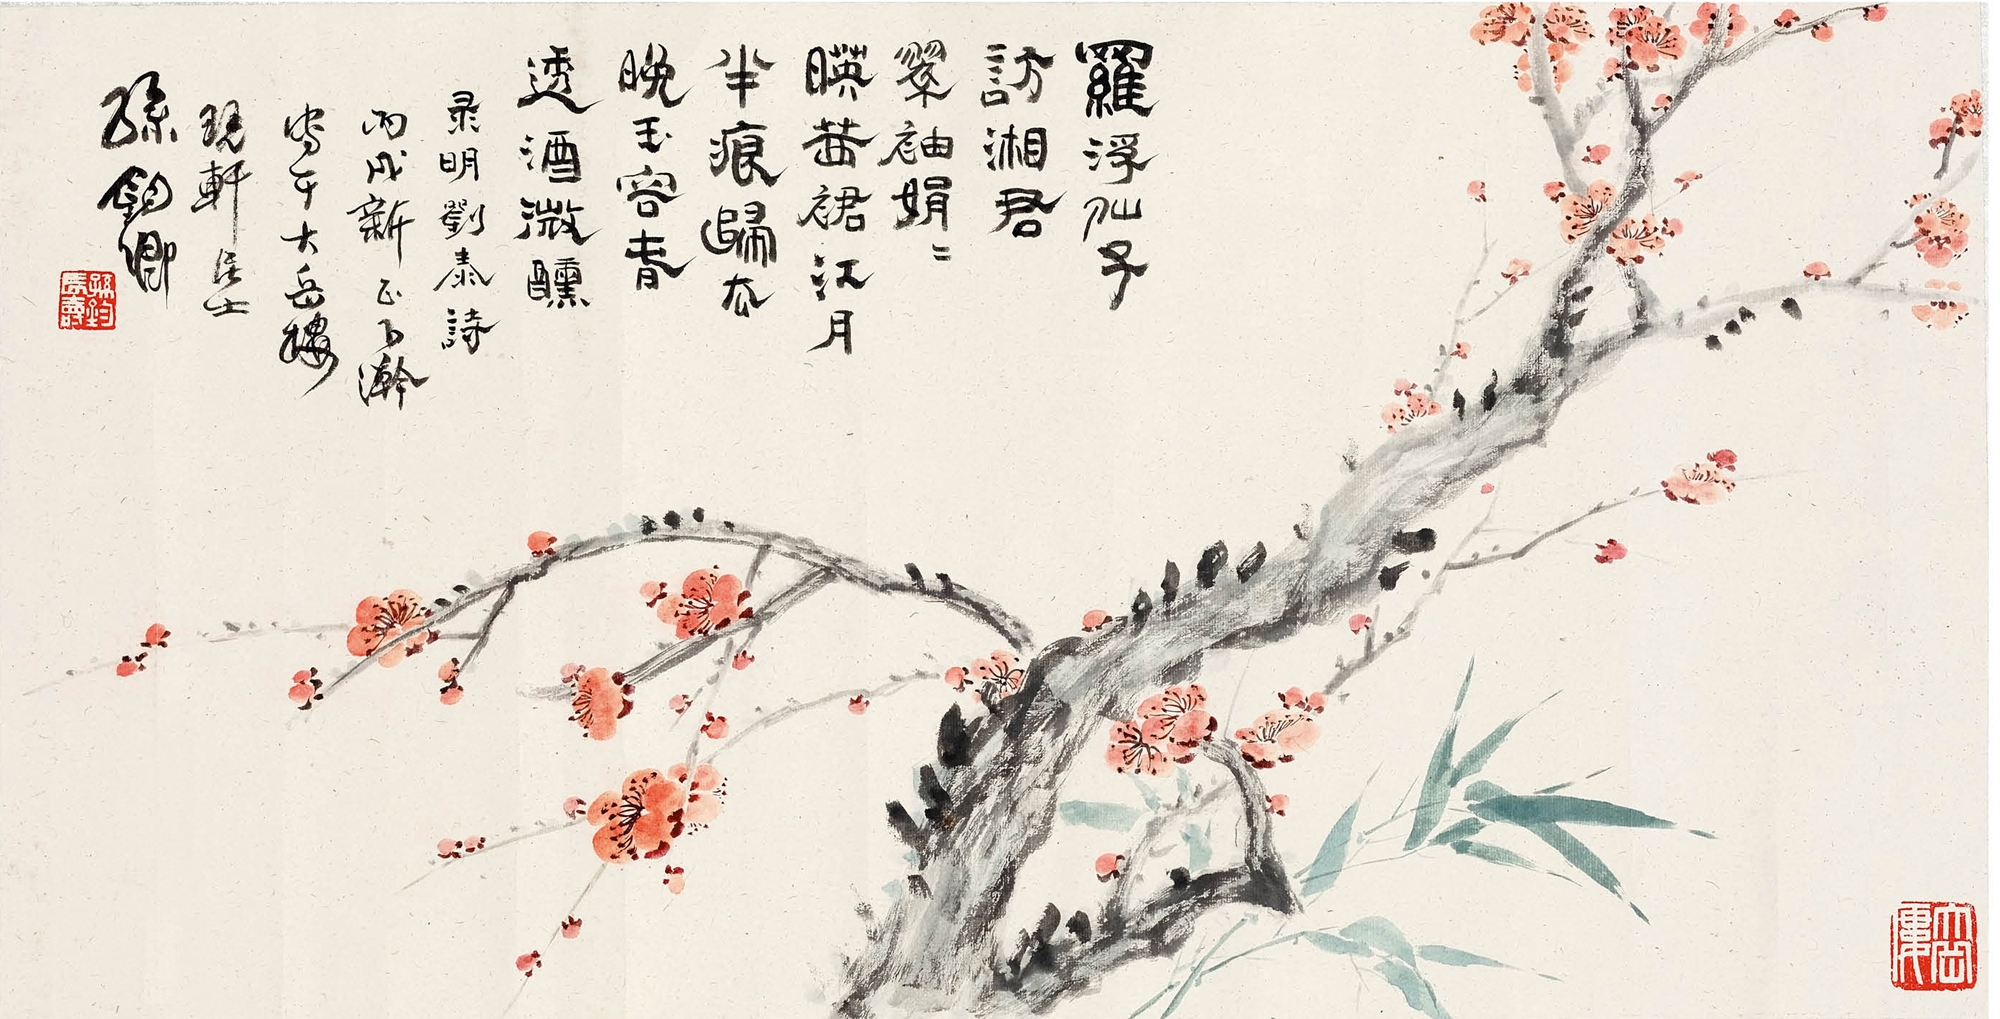 羅浮仙子
訪湘君
翠袖娟〻
暎茜裙江月
半痕歸太
晚玉容春
透酒微醺
录明劉泰詩
丙戌新正下瀚
寫于大岳樓
軒居士
孫鈞卿